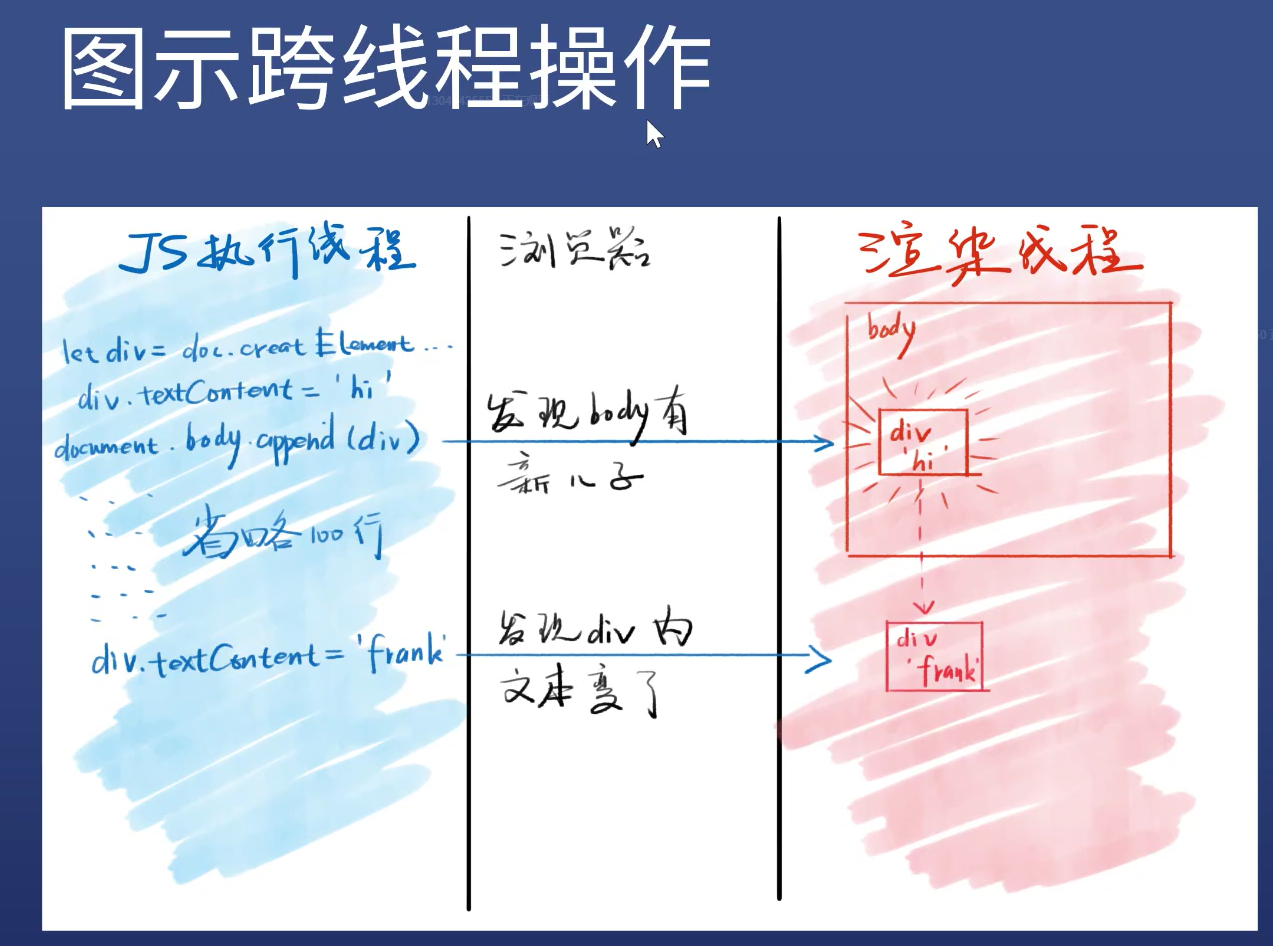 图示跨线程操作
JS执行线程
let div = doc.creat Element ...
div.textContent = 'hi'
document.body.append(div)
省略100行
div.textContent = 'frank'
浏览器
发现body有
新儿子
发现div内
文本变了
渲染线程
body
div
'hi'
div
'frank'